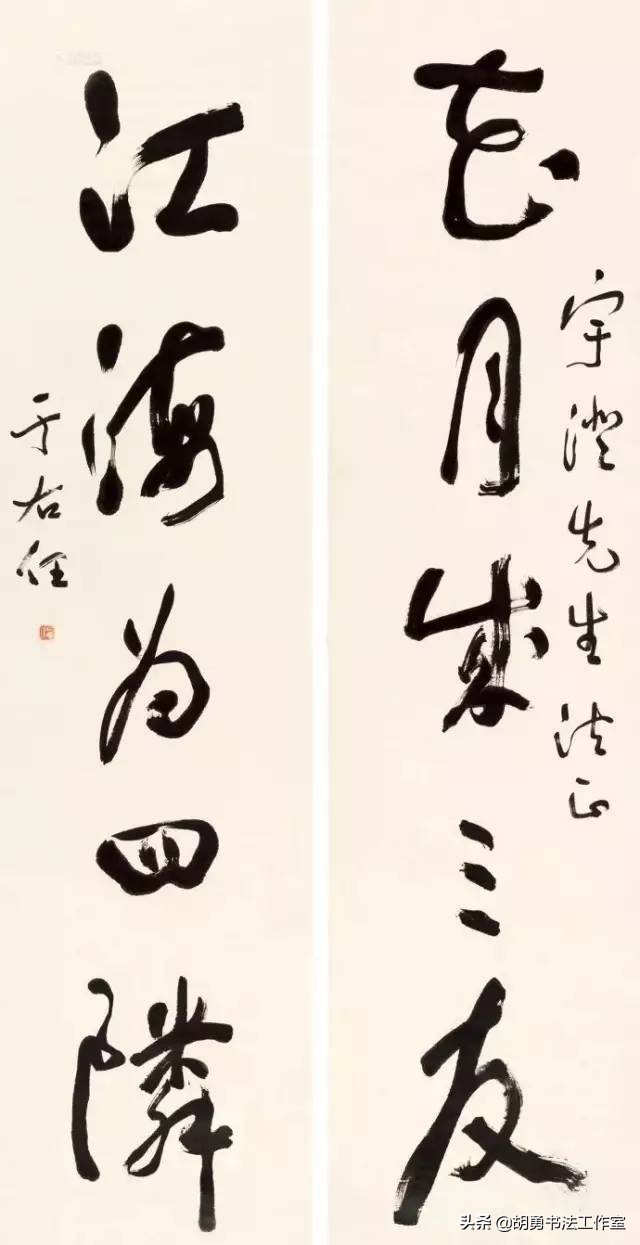 花月成三友
宇澄先生法正
江海为四隣
于右任
头条 @胡勇书法工作室